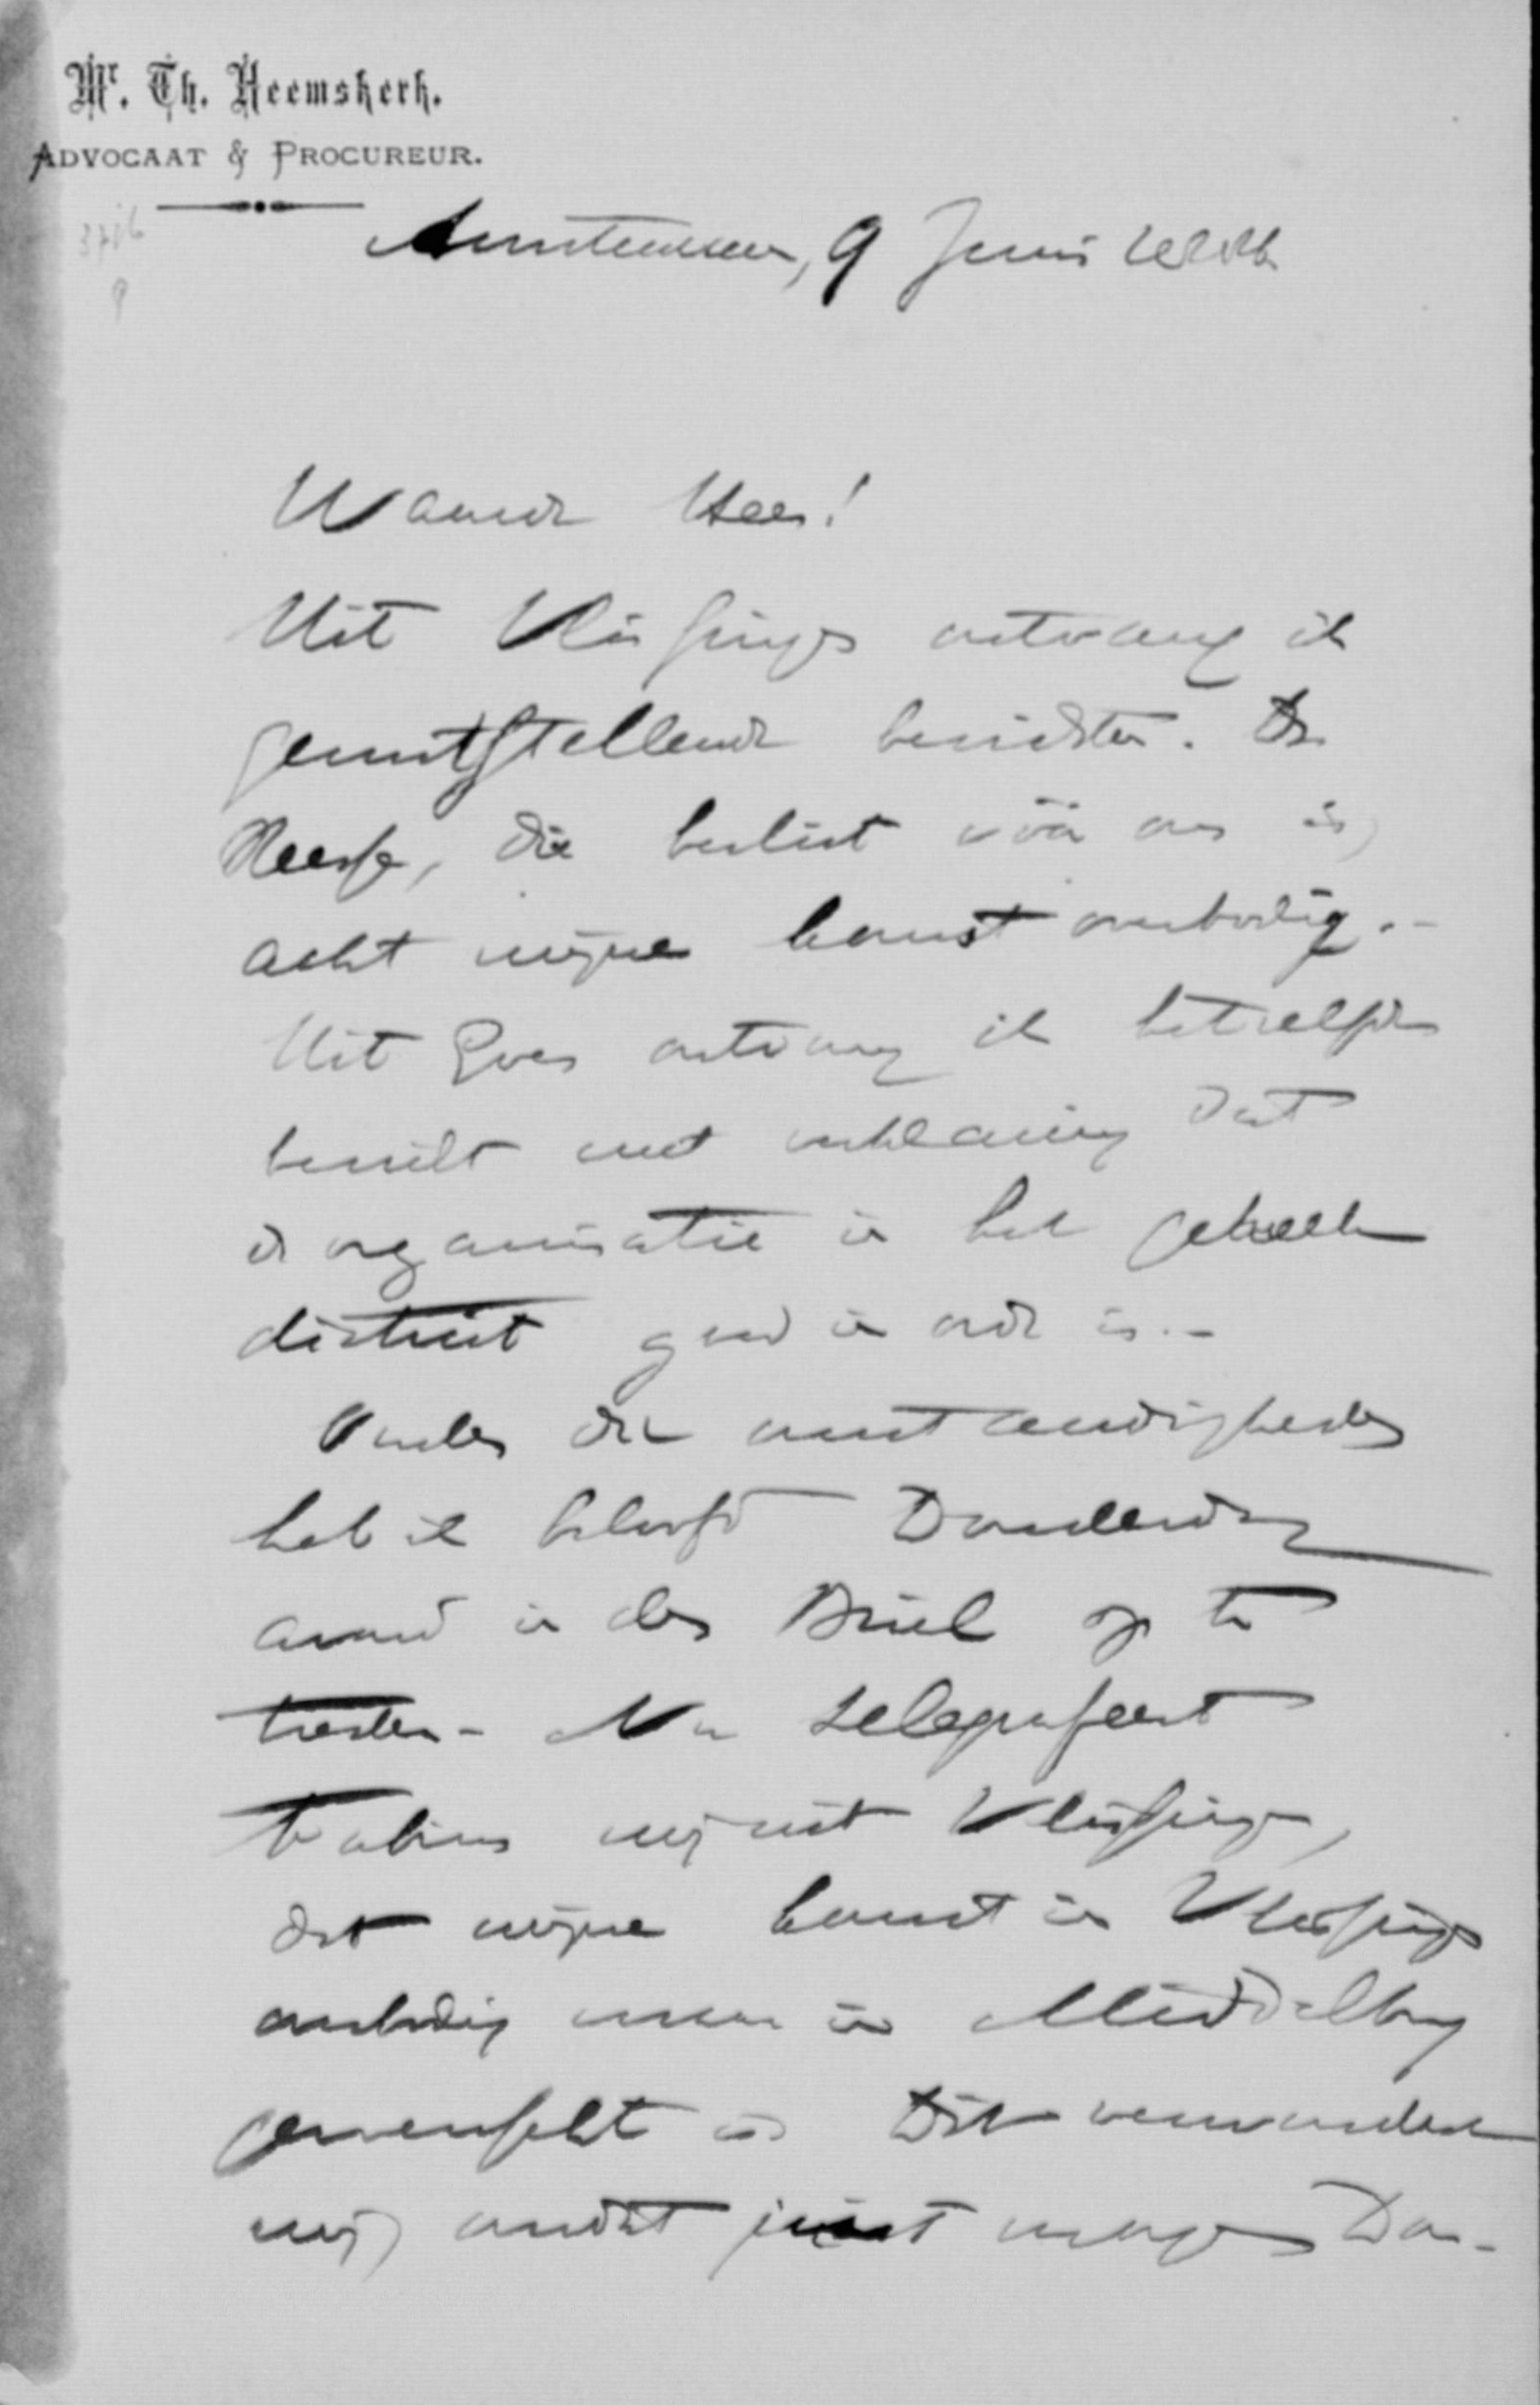 Mr. Th. Heemskerk.
ADVOCAAT & PROCUREUR.
Amsterdam, 9 Juni
Waarde Heer!
Uit Vlissingen ontvang ik
geruststellende berichten. De
die beslist vóór ons is,
acht mijne komst overbodig.-
Uit Goes ontvang ik hetzelfde
bericht met verklaring dat
de organisatie in het geheele
district goed in orde is.-
Onder die omstandigheden
heb ik beloofd Donderdag
avond in den Briel op te
treden- Nu telegrafeert
Fabius mij uit Vlissingen,
dat mijne komst in Vlissingen
overbodig maar in Middelburg
gewenscht is Dit verwondert
mij, omdat juist morgen Don-